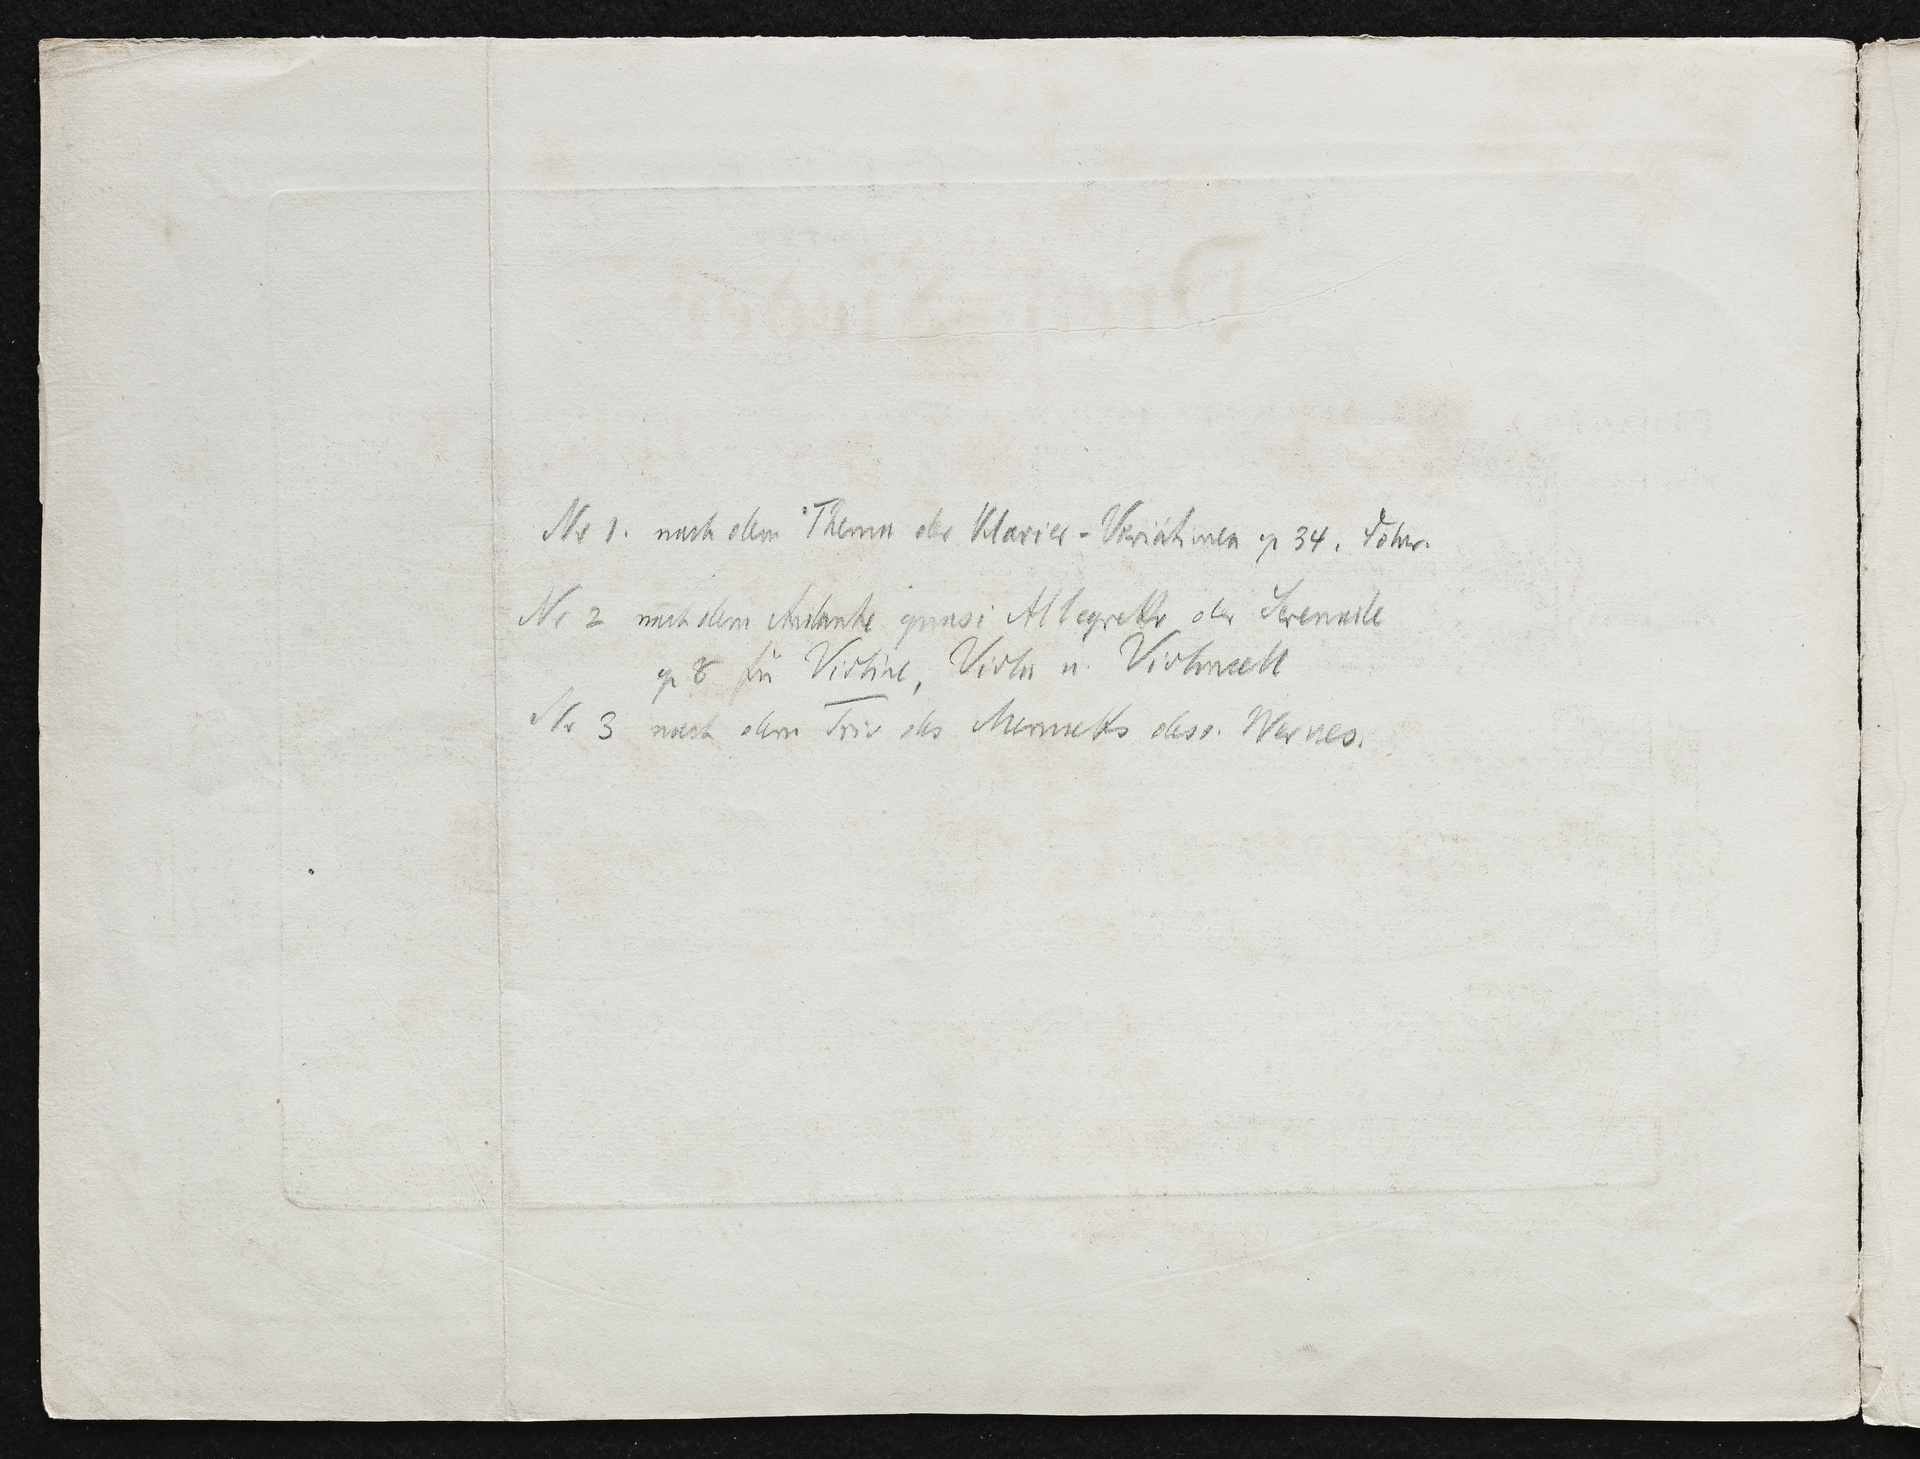 Nr 1. nach dem Thema der Klavier-Variationen op 34. Fdur.
Nr 2 nach dem Andante quasi Allegretto der Serenade
op 8 für Violine, Viola u. Violoncell
Nr 3 nach dem Trio des Menuetts dess. Werkes.